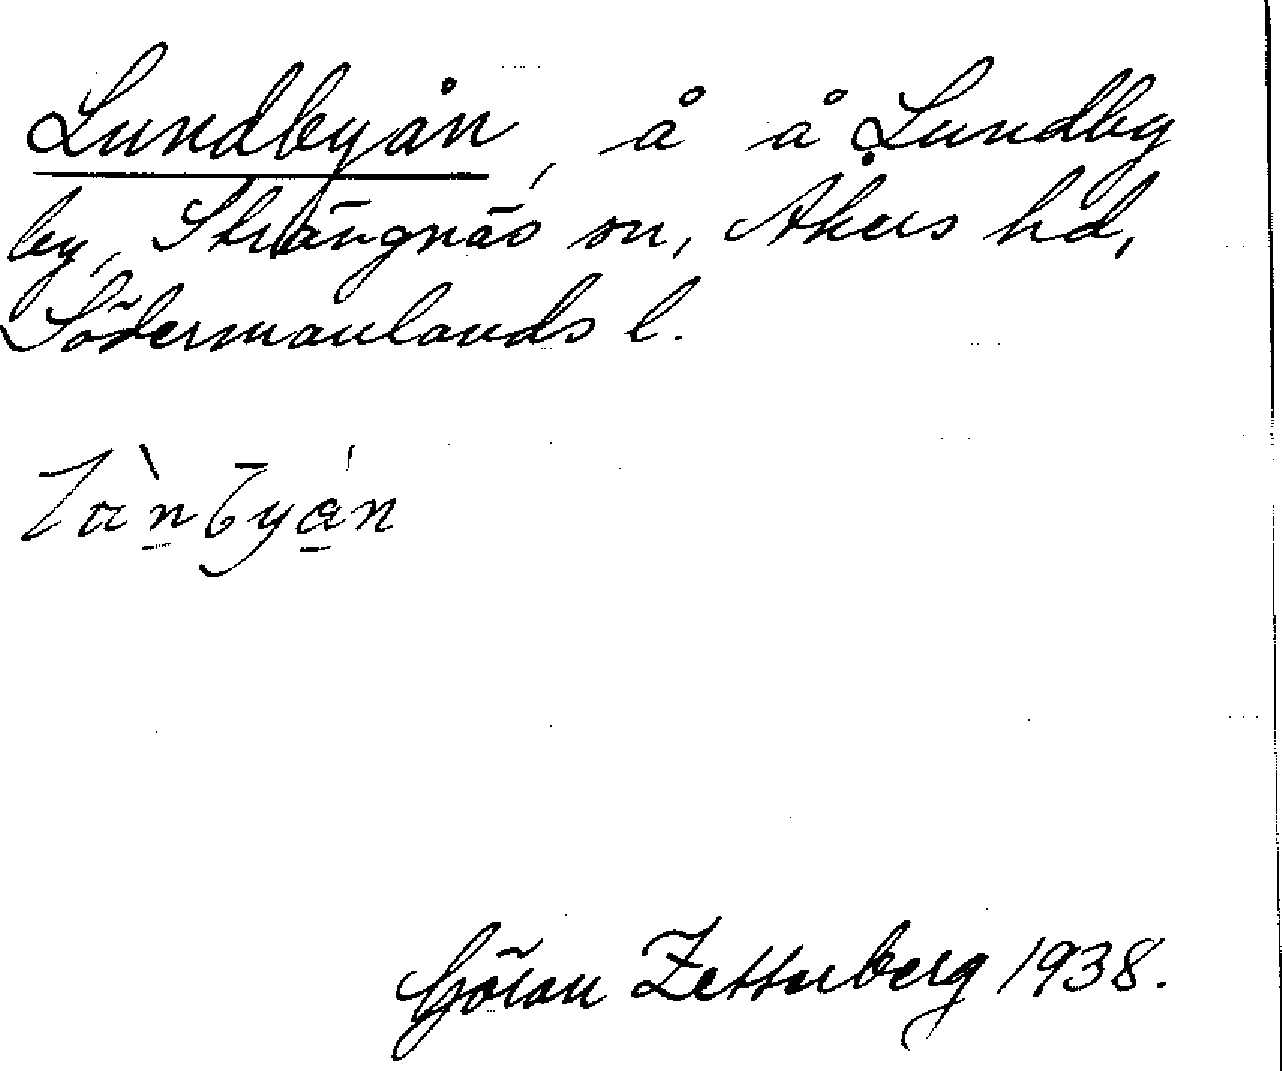 Lundbyån, å å Lundby
by, Strängnäs sn, Åkers hd,
Södermanlands l.
Göran Zetterberg 1938.